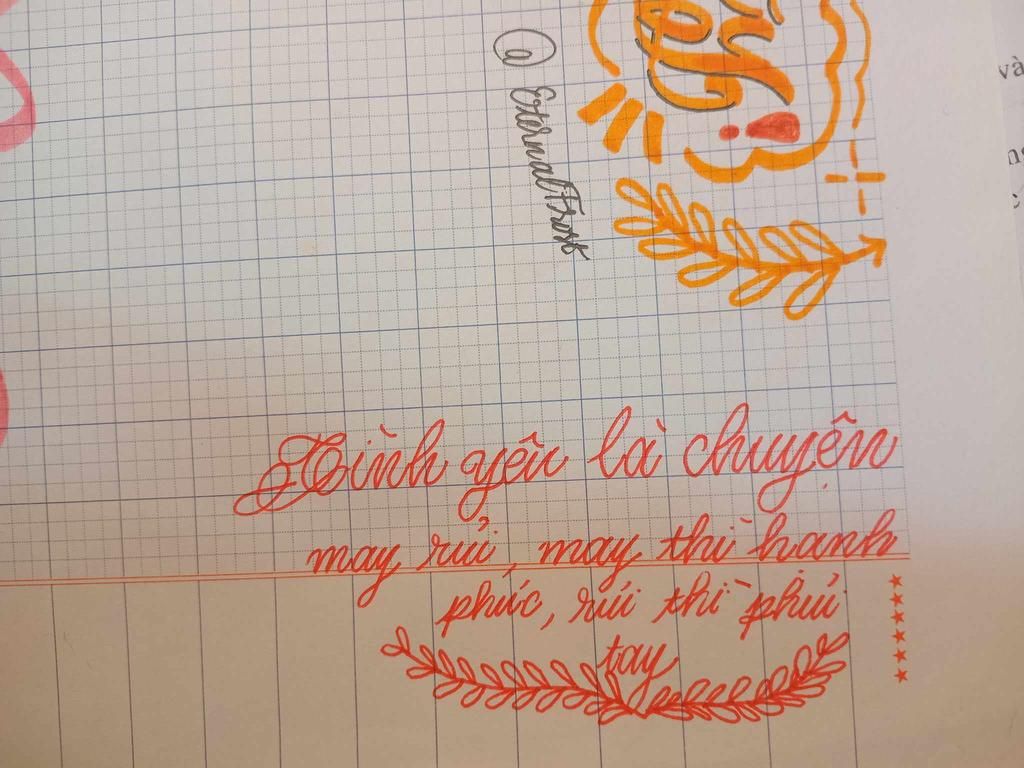 @EternalFrost
Tình yêu là chuyện
may rủi, may thì hạnh
phúc, rủi thì phủi
tay
và